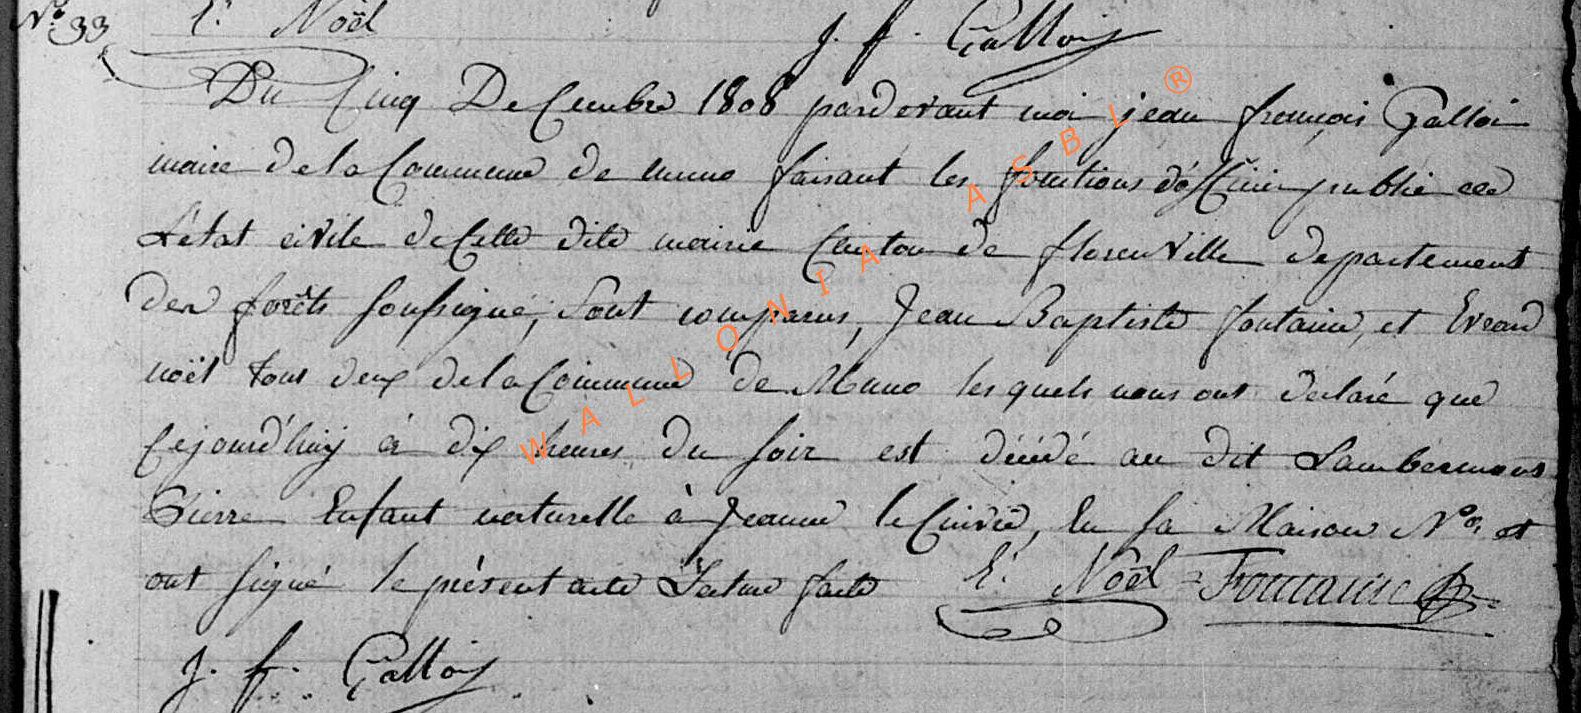 No. 33 E. Noël J. f. Galloÿ
Du Cinq Decembre 1808 pardevant moi jean françois Galloi
maire de la Commune de muno faisant les fonctions d'officier publié de
L'état civile de Cette dite mairie Canton de florenville departement
des forêts soussigné, sont comparus, Jean Baptiste fontaine, et Evrard
noël tous deux de la Commune de Muno lesquels nous ont declaré que
Cejourd'huÿ à dix heures du soir est décédé au dit Lambermont
Pierre Enfant naturelle à Jeanne le En sa Maison No. et
ont signé le présent acte Lecture faite E. Noël Fontaine
J. f. Galloÿ
WALLONIA ASBL ®